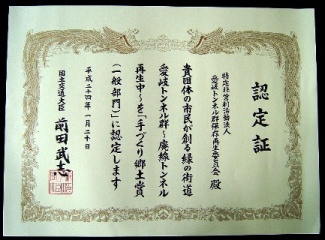 認定証
特定非営利活動法人
愛岐トンネル群保存再生委員会 殿
貴団体の市民が創る緑の街道
愛岐トンネル群～廃線トンネル
再生中～を「手づくり郷土賞
（一般部門）」に認定します
平成二十四年一月二十日
国土交通大臣
前田武志